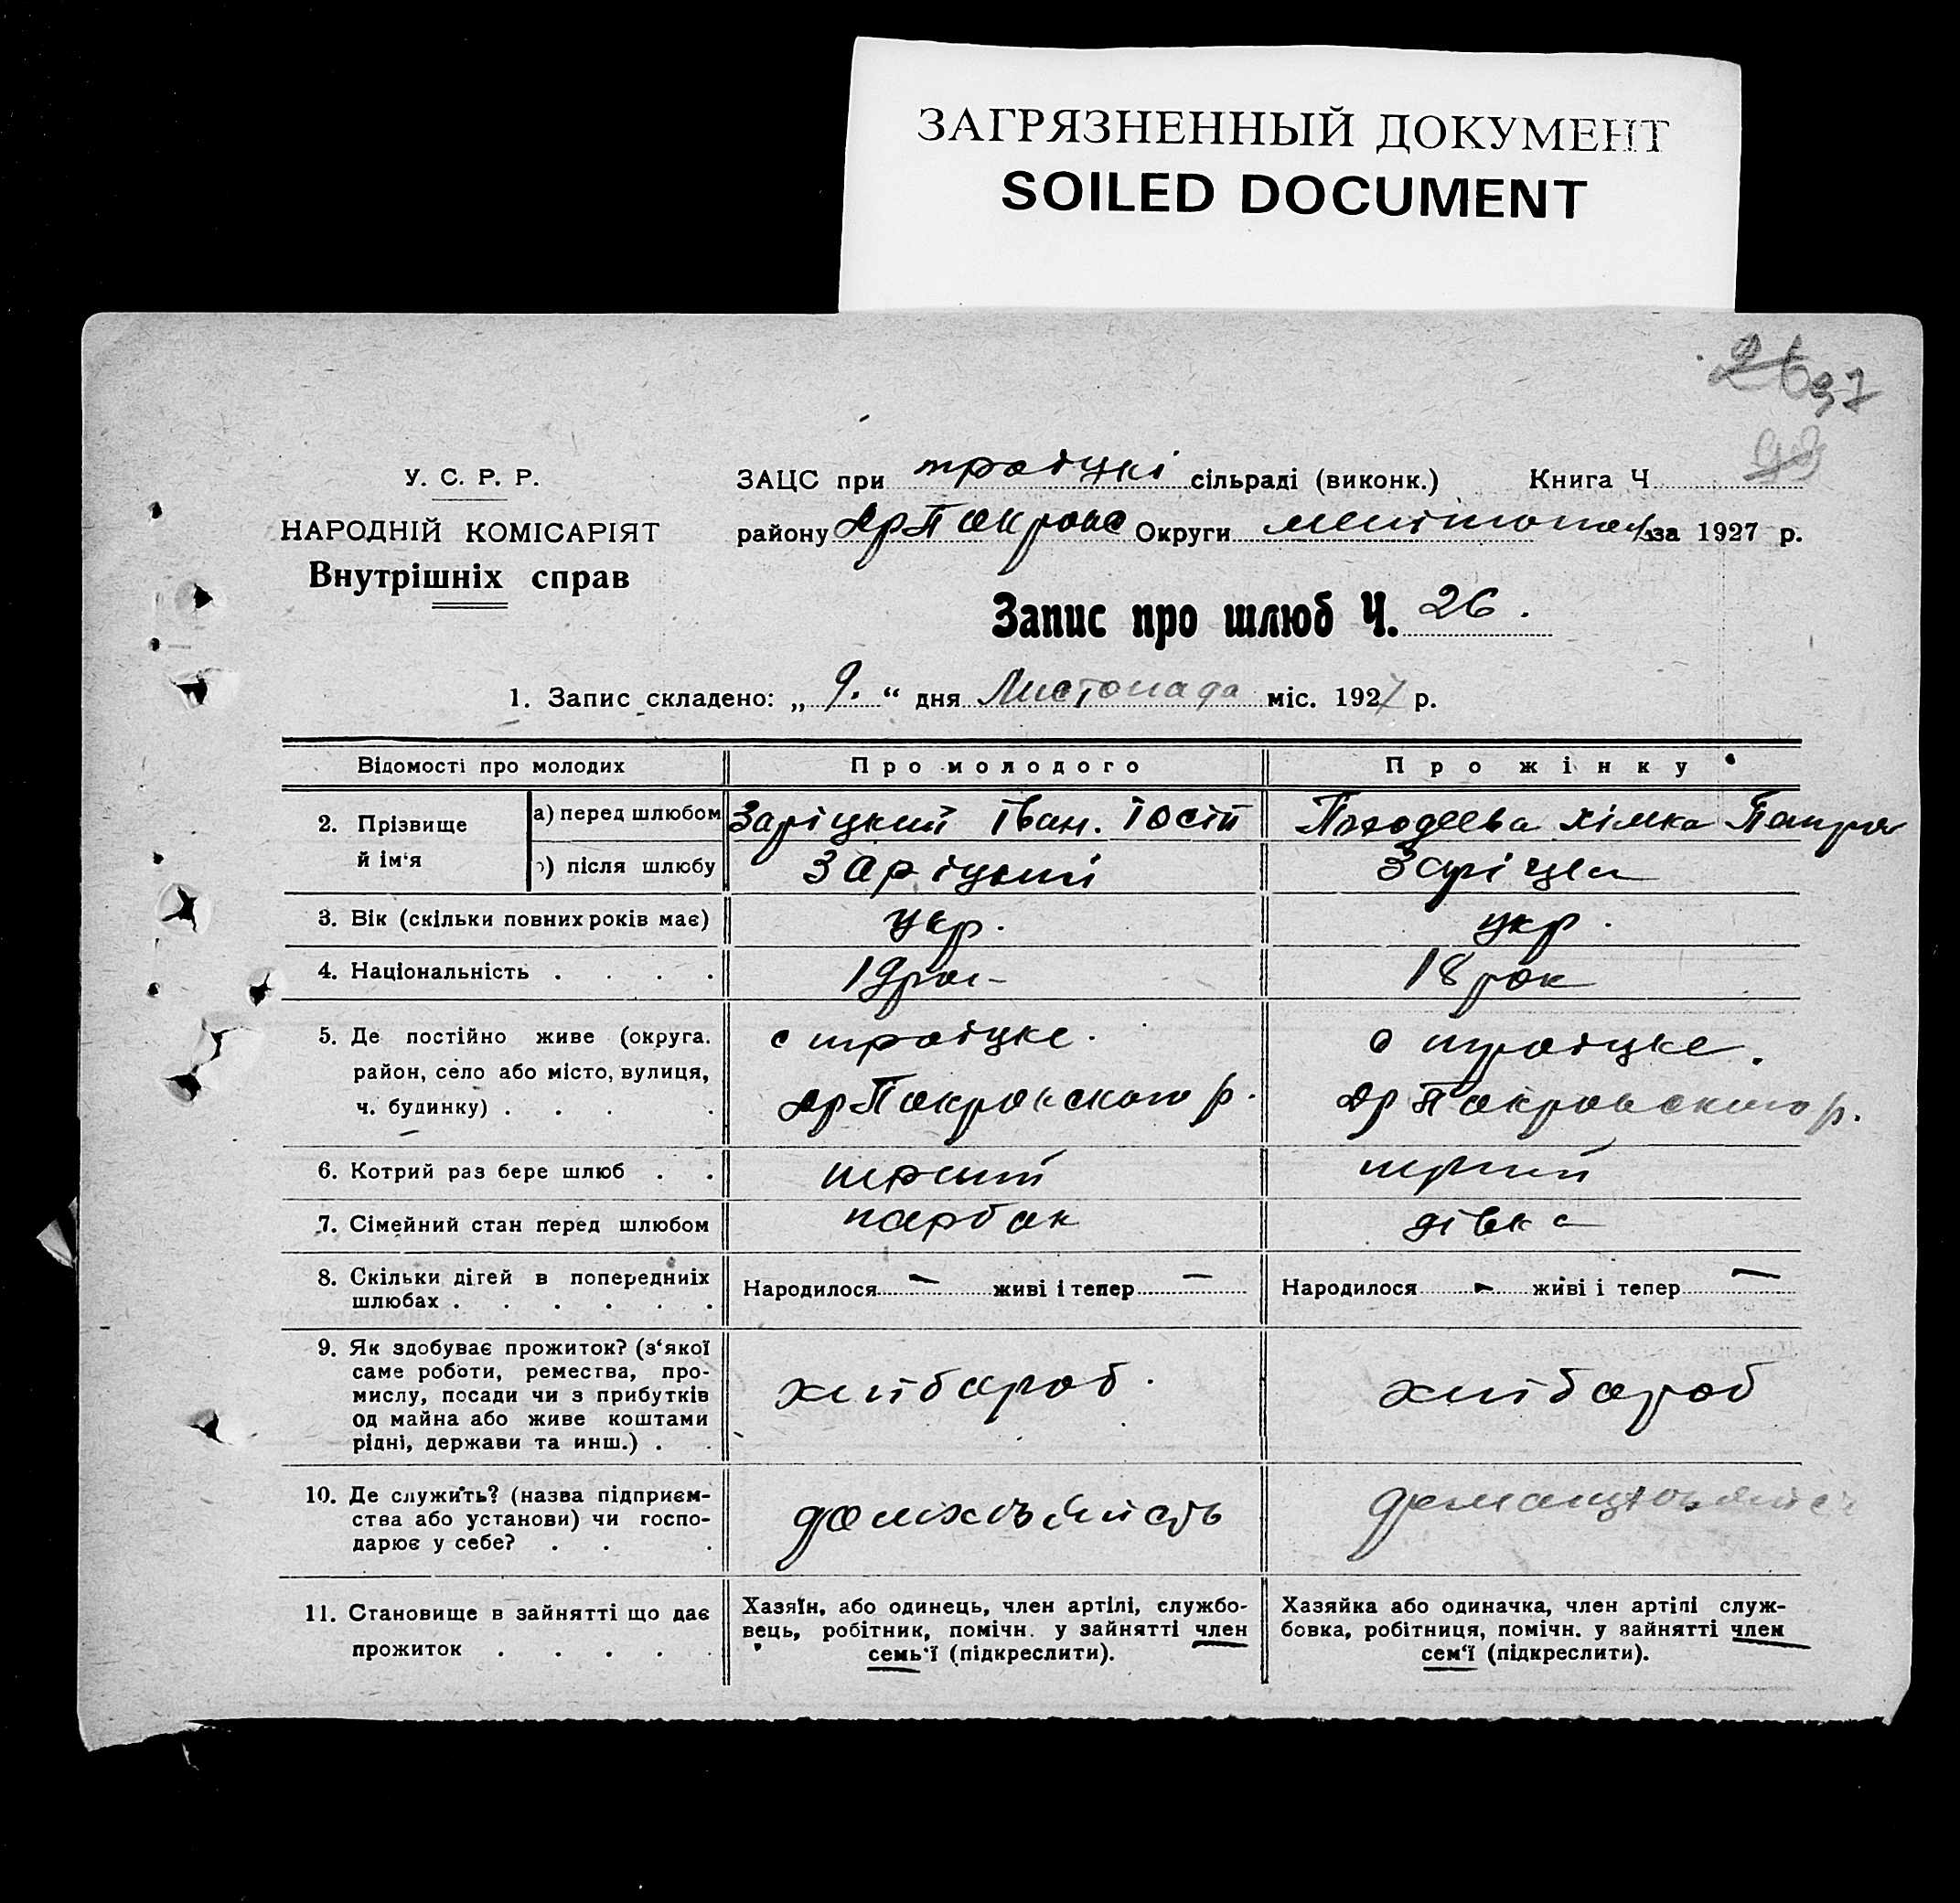 ЗАГРЯЗНЕННЫЙ ДОКУМЕНТ
SOILED DOCUMENT
26 97
98
У. С. Р. Р.
НАРОДНІЙ КОМІСАРІЯТ
Внутрішніх справ
ЗАЦС при троіцкі сільраді (виконк.) Книга Ч
району Округи за 1927 р.
Запис про шлюб Ч. 26.
1. Запис складено: „ 9. “ дня Листопада міс. 1927 р.
Відомості про молодих Про молодого Про жінку
2. Прізвище й ім‘я
а) перед шлюбом Заріцкий Іван. Іосіп Хімка
) після шлюбу Заріцкий Заріцка
3. Вік (скільки повних років має) укр. укр.
4. Національність . . . . 19 18 рок
5. Де постійно живе (округа. с троіцке. с троіцке.
район, село або місто, вулиця,
ч. будинку) . . . . Покровского р. Покровского р.
6. Котрий раз бере шлюб . . перший перший
7. Сімейний стан перед шлюбом парбок дівка
8. Скільки дітей в попередниіх Народилося — живі і тепер — Народилося - живі і тепер —
шлюбах . . . . . .
9. Як здобуває прожиток? (з‘якої
саме роботи, ремества, про-
мислу, посади чи з прибутків хлібороб. хлібороб
од майна або живе коштами
рідні, держави та инш.) . .
10. Де служить? (назва підприєм-
ства або установи) чи госпо-
дарює у себе? . . .
11. Становище в зайнятті що дає
прожиток . . . . .
Хазяїн, або одинець, член артілі, службо-
вець, робітник, помічн. у зайнятті член
семь‘ї (підкреслити).
Хазяйка або одиначка, член артілі служ-
бовка, робітниця, помічн. у зайнятті член
сем‘ї (підкреслити).